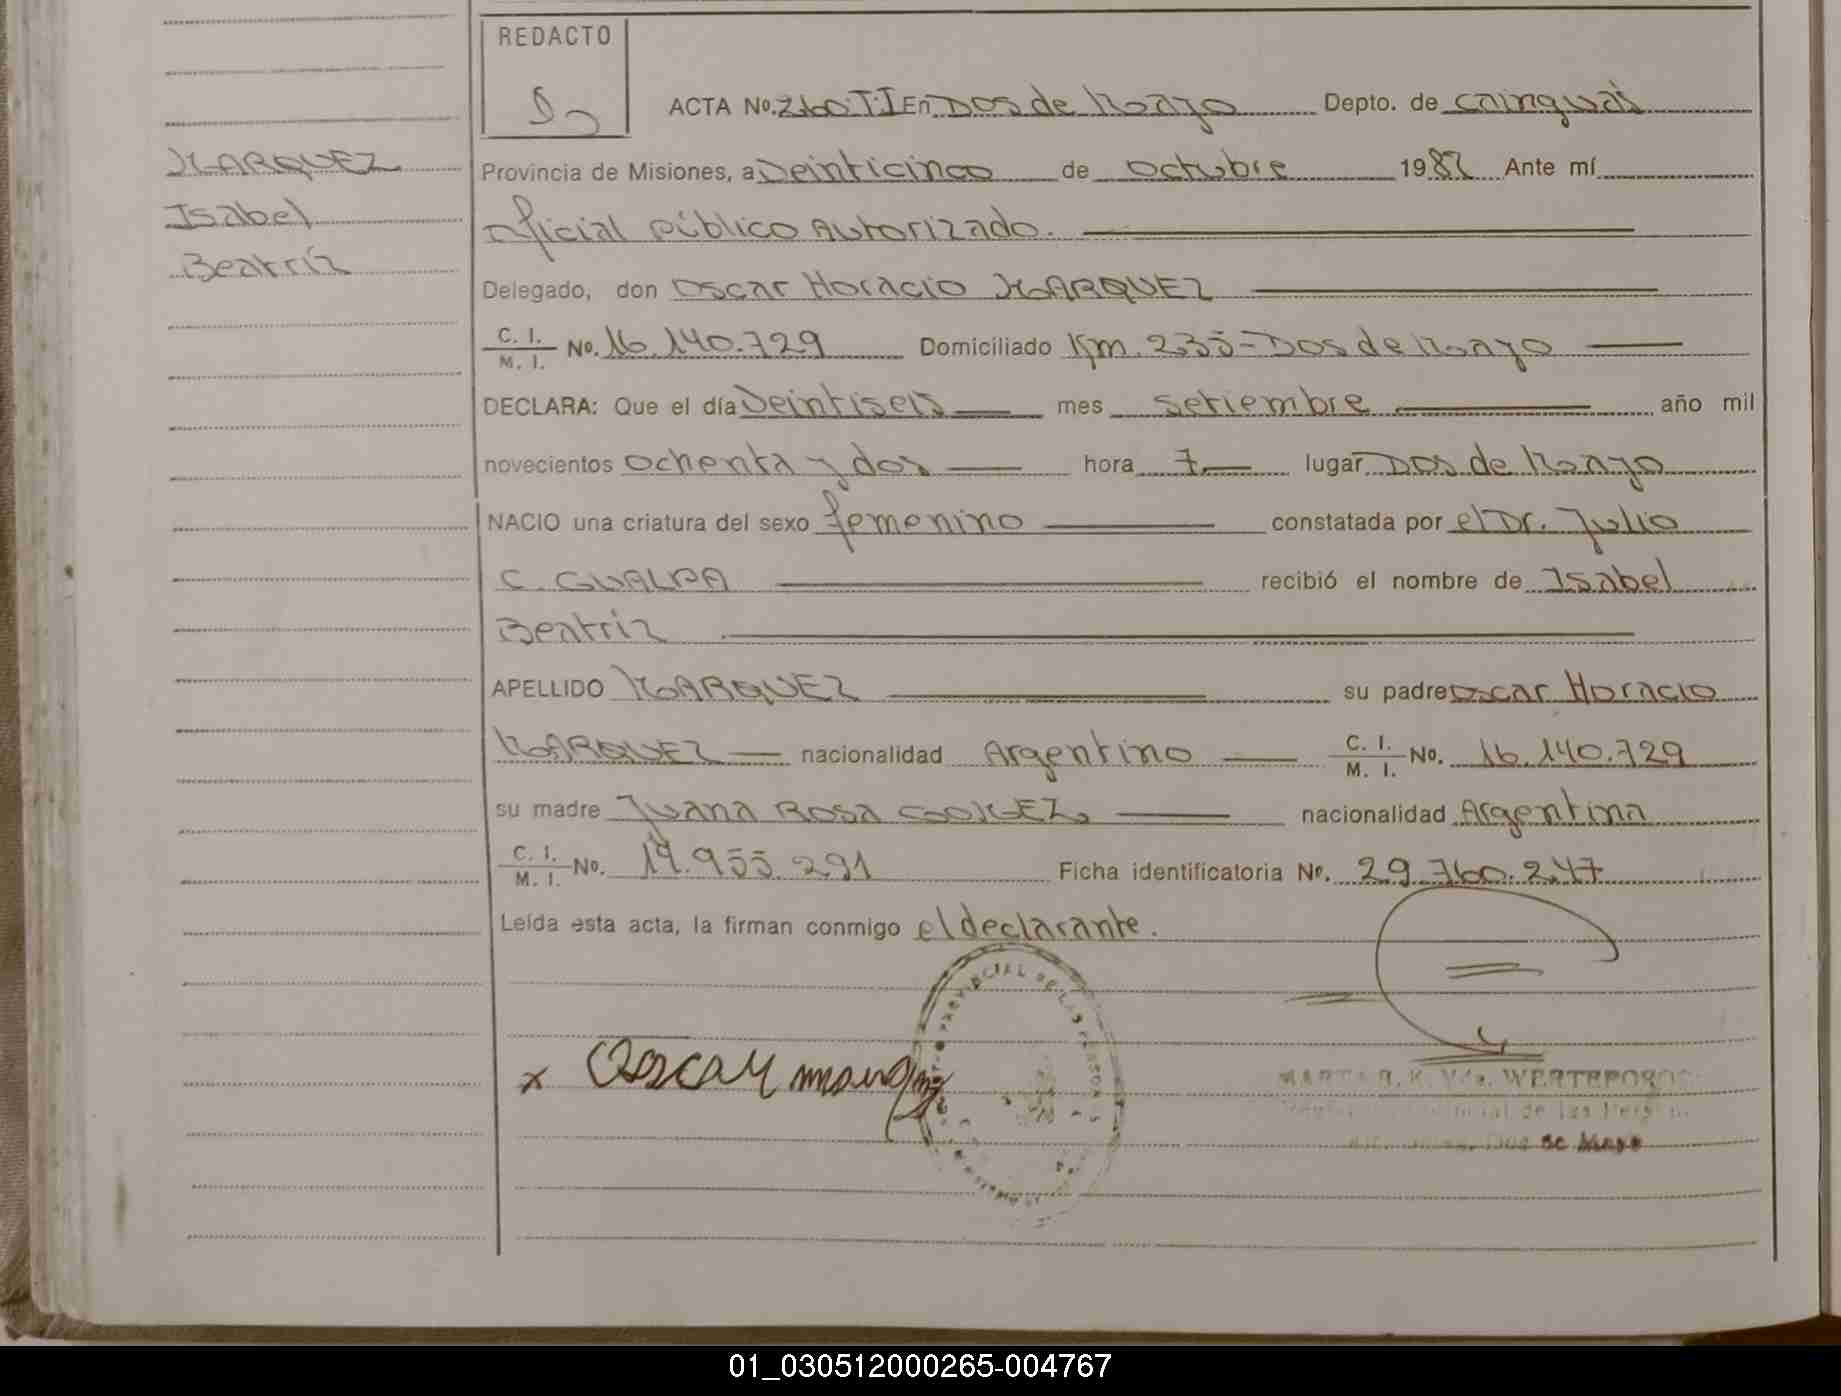 REDACTO
ACTA No. 260.TI En Dos de Mayo Depto. de Cainguás
MARQUEZ
Provincia de Misiones, a Veinticinco de Octubre 1982 Ante mí
Isabel
Oficial Público Autorizado.
Beatríz
Delegado, don Oscar Horacio MARQUEZ
C. I. / M. I. No. 16.140.729 Domiciliado Km. 235-Dos de Mayo
DECLARA: Que el día Veintiseis mes setiembre año mil
novecientos ochenta y dos hora 7 lugar Dos de Mayo
NACIO una criatura del sexo femenino constatada por el Dr. Julio
C. GUALPA recibió el nombre de Isabel
Beatriz
APELLIDO MARQUEZ su padre Oscar Horacio
MARQUEZ nacionalidad Argentino C. I. / M. I. No. 16.140.729
su madre Juana Rosa nacionalidad Argentina
C. I. / M. I. No. 14.955.291 Ficha identificatoria Nº. 29.760.247
Leída esta acta, la firman conmigo el declarante.
PROVINCIAL DE LAS PERSONAS
x Oscar
MARTA R. K. Vda. WERTEPOROC
Provincial de las Personas
Dos de Mayo
01_030512000265-004767